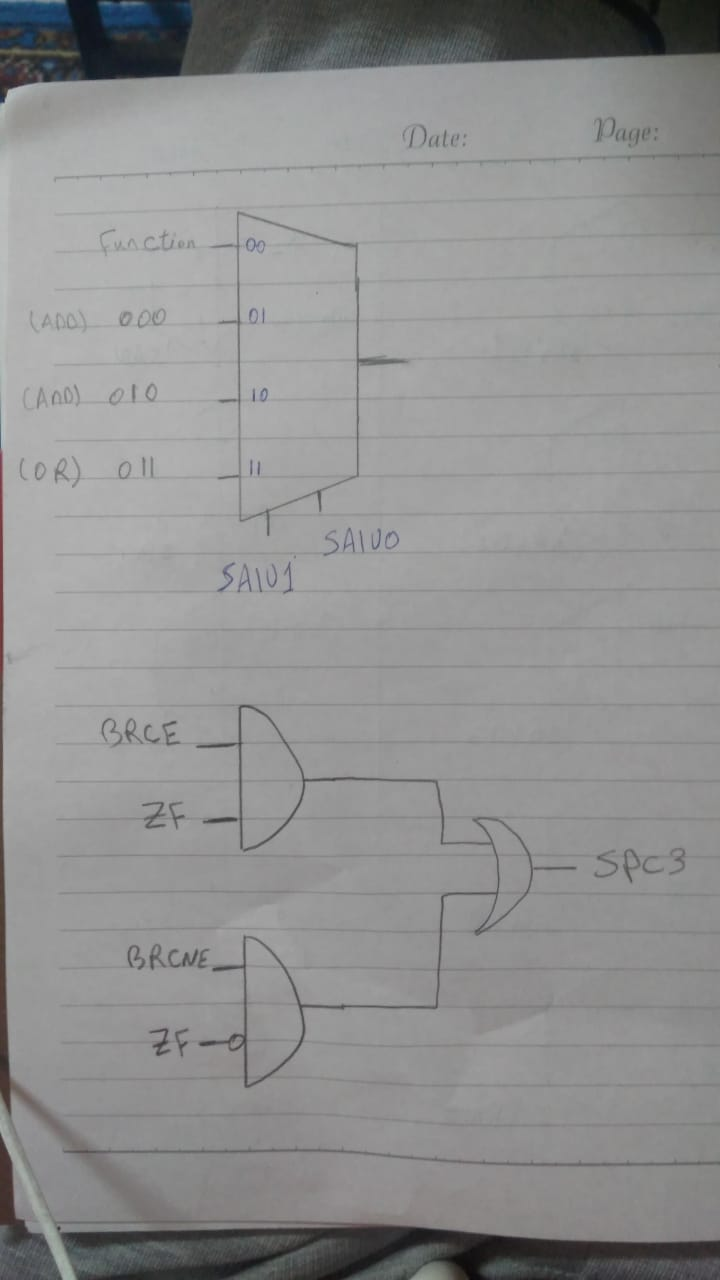 Date: Page:
Function 00
(ADD) 000 01
(AnD) 010 10
(OR) 011 11
SAlU0
SAlU1
BRCE
ZF
SPC3
BRCNE
ZF